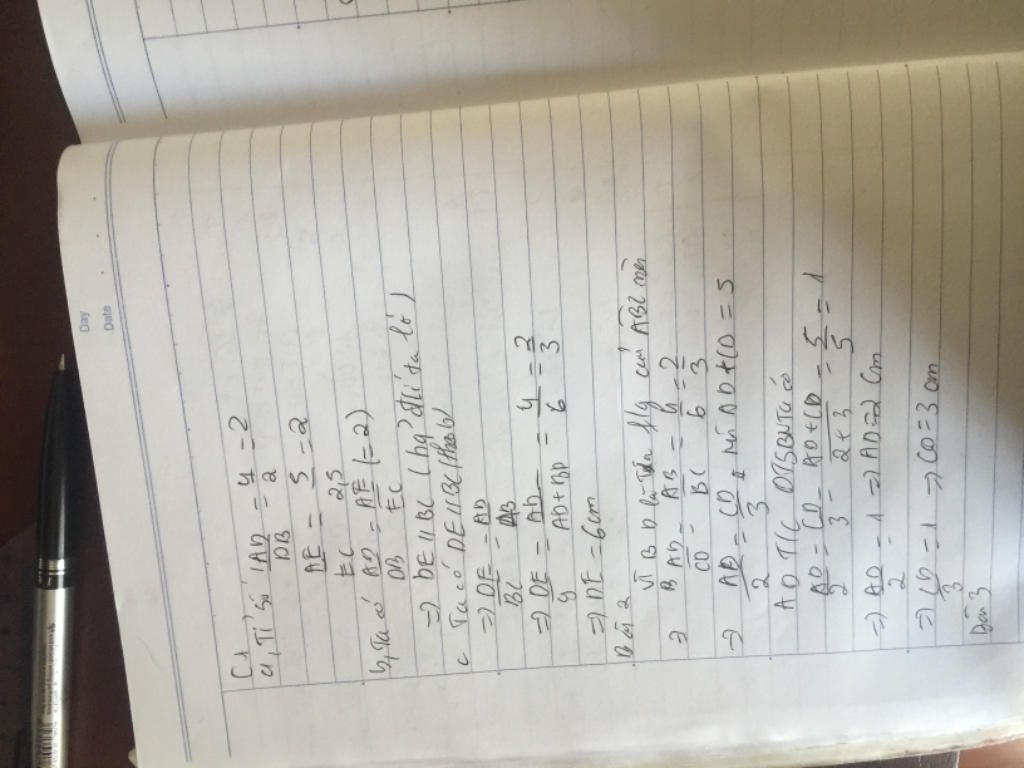 Day
Date
C1
a, Tỉ số AD/DB = 4/2 = 2
AE/EC = 5/2,5 = 2
b, Ta có AD/DB = AE/EC (= 2)
=> DE // BC ( hq' đlí ta lét )
c Ta có DE // BC
=> DE/BC = AD/AB
=> DE/9 = AD/AD+BD = 4/6 = 2/3
=> DE = 6cm
Bài 2
Vì BD là f/g của ABC nên
=> AD/CD = AB/BC = 4/6 = 2/3
=> AD/2 = CD/3 mà AD + CD = 5
AD T/C DTSBN Ta có
AD/2 = CD/3 = AD+CD/2+3 = 5/5 = 1
=> AD/2 = 1 => AD = 2 cm
=> CD/3 = 1 => CD = 3 cm
Bài 3